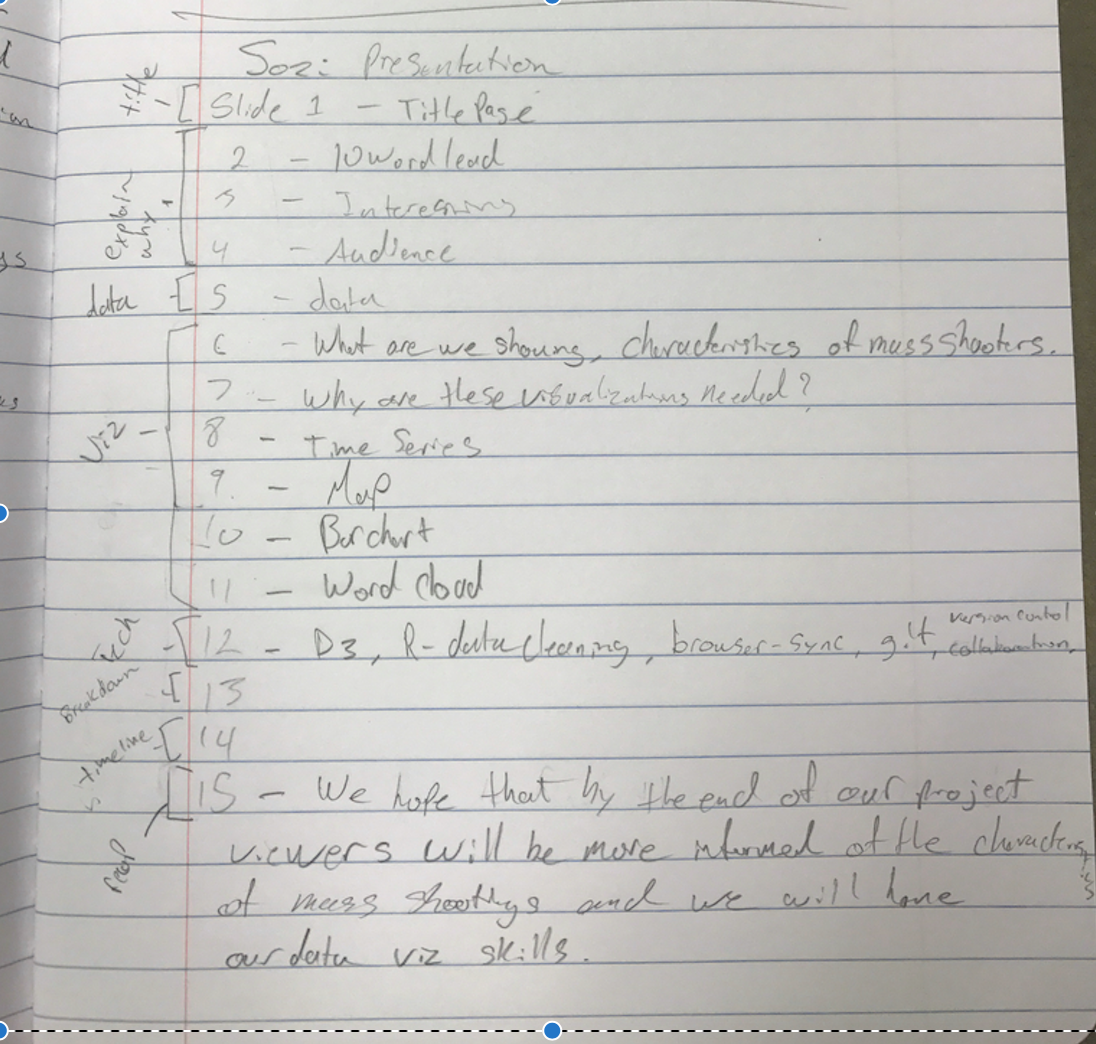 Sozi Presentation
title [ Slide 1 - Title Page
explain why + [ 2 - 10 word lead
3 - Interesting
4 - Audience
data - [ 5 - data
Viz - [ 6 - What are we showing, characteristics of mass shooters.
7 - Why are these visualizations needed?
8 - Time Series
9. - Map
10 - Barchart
11 - Word Cloud
tech - [ 12 - D3, R - data cleaning, browser-sync, git, version control collaboration,
Breakdown - [ 13
timeline - [ 14
recap [ 15 - We hope that by the end of our project
viewers will be more informed of the characteristics
of mass shootings and we will hone
our data viz skills.